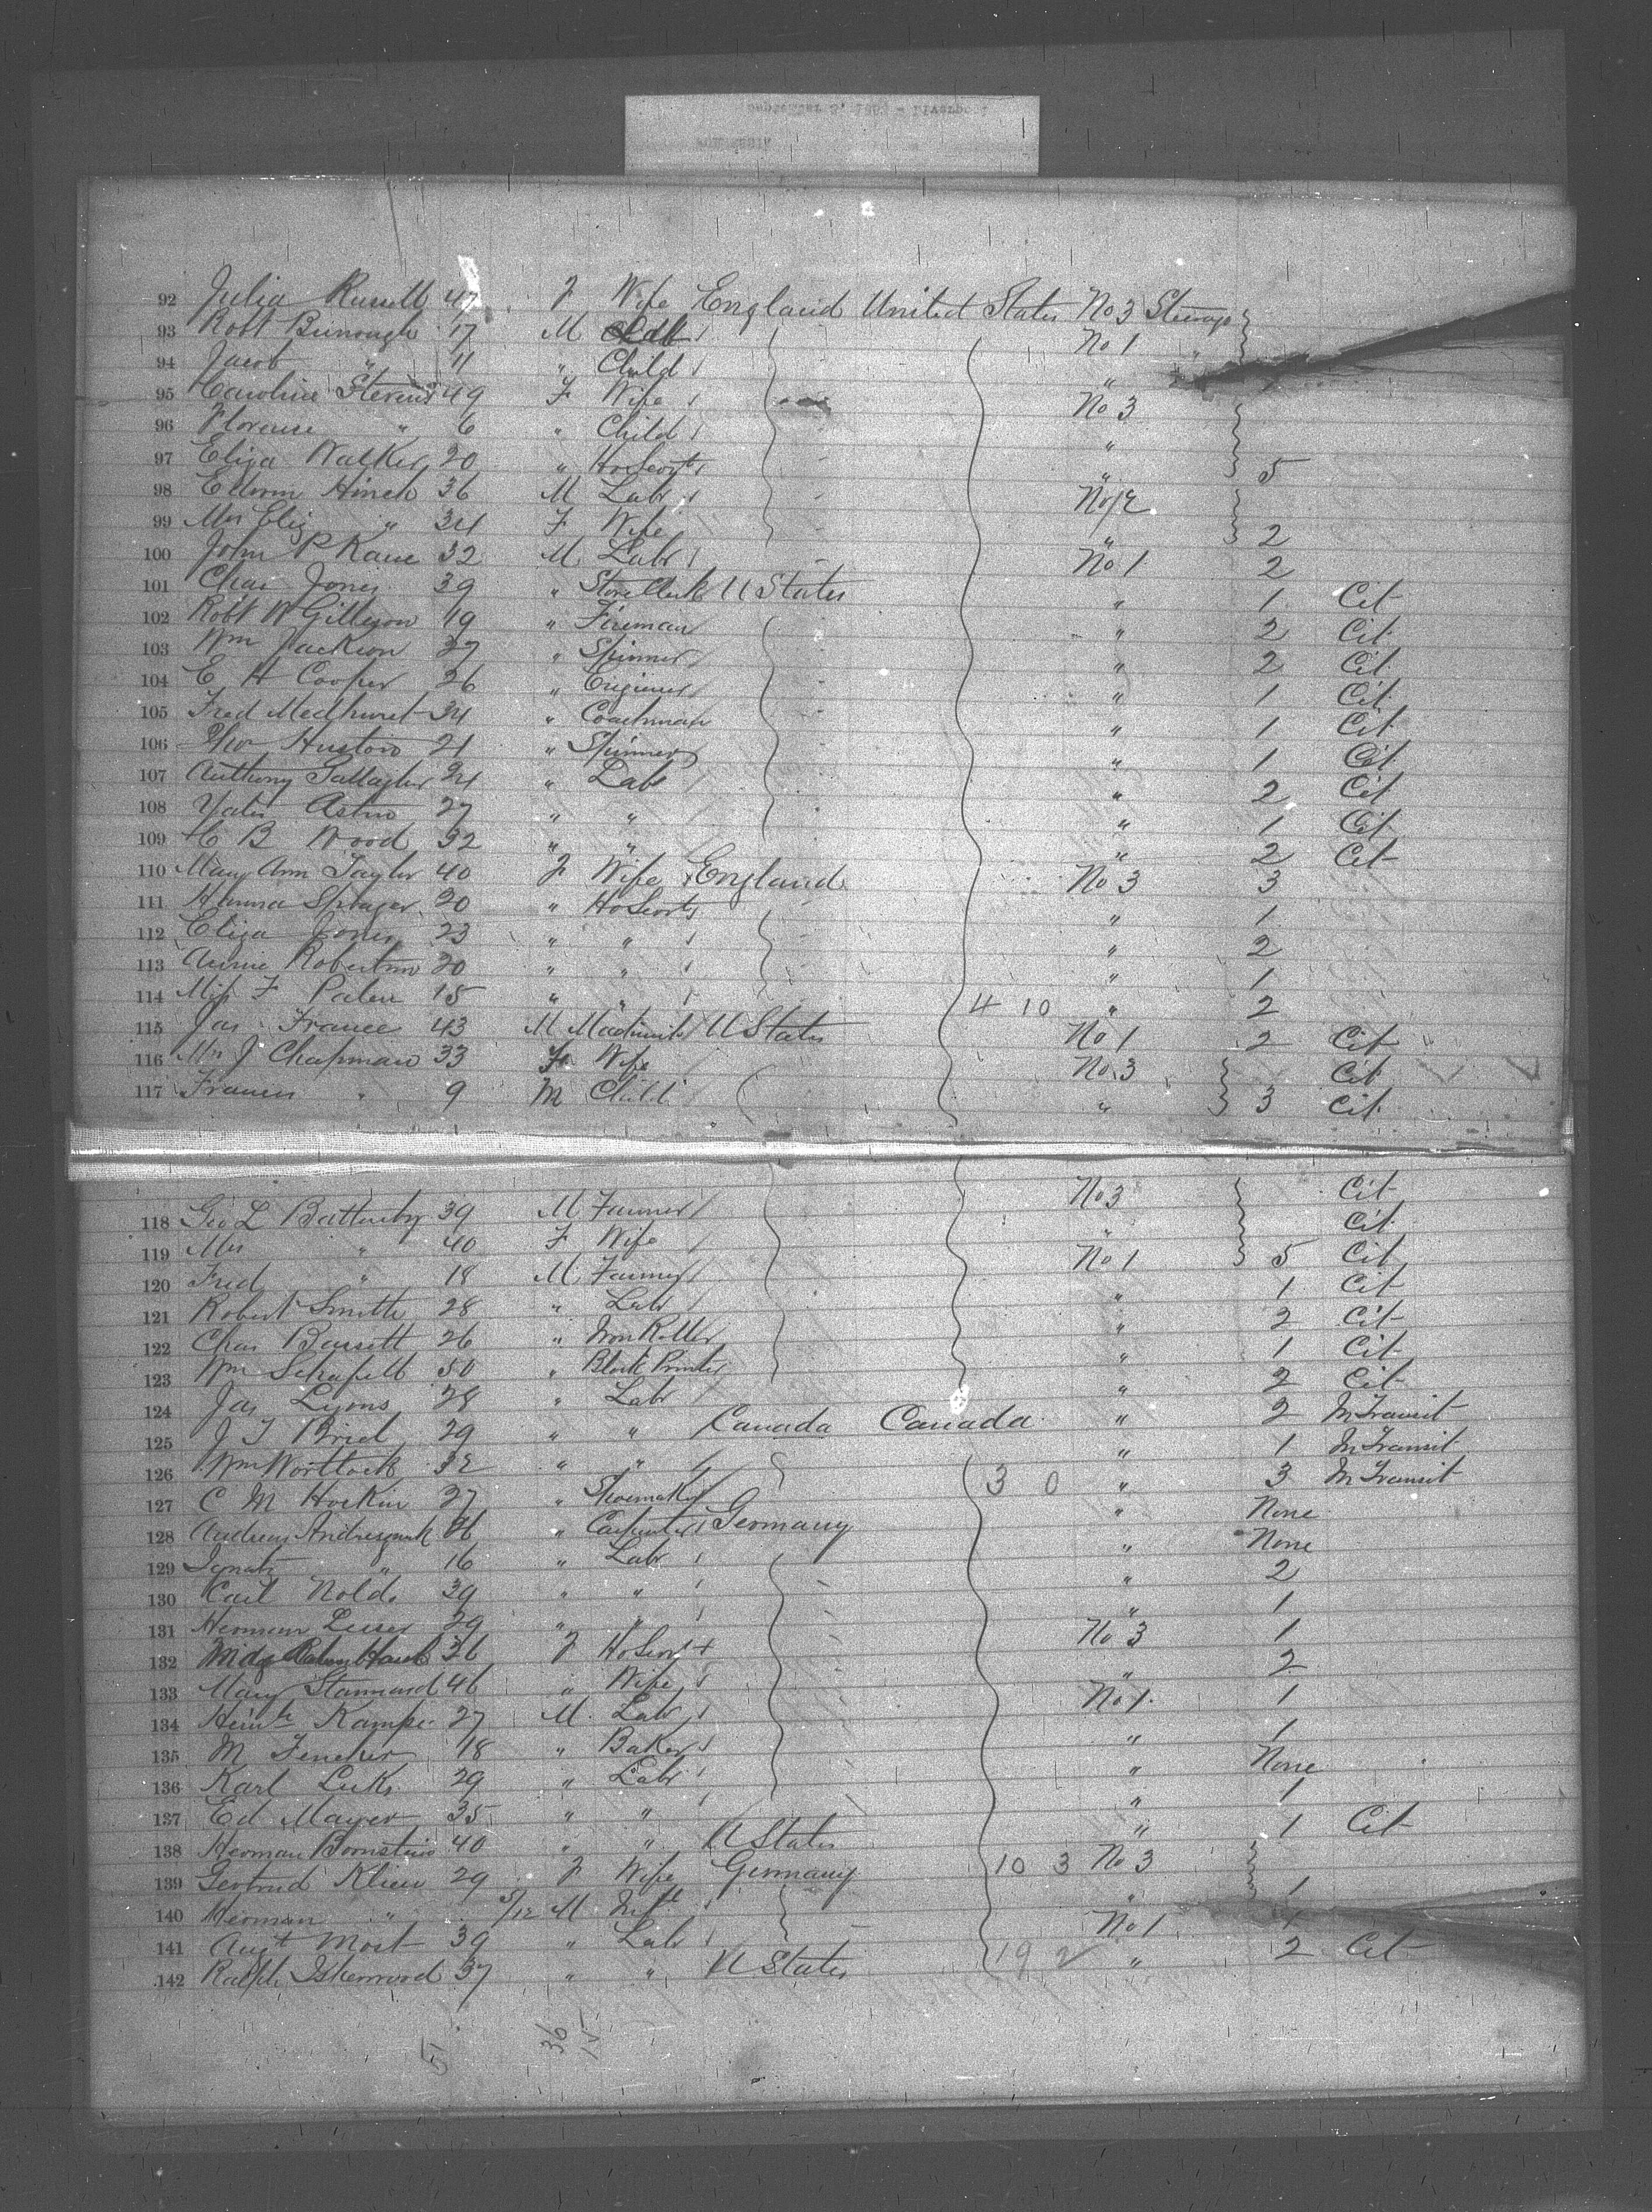 92 Julia Russell 47 F Wife England United States No 3 Steerage
93 Robt Burrough 17 M No 1 "
94 Jacob " 11 " Child "
95 Caroline Stevens 49 F Wife No 3
96 Florence " 6 " Child "
97 Eliza Walker 20 " " 5
98 Edwin Hinch 36 M Labr
99 Mrs Eliz " 34 F Wife " 2
100 John P Kane 32 M Labr No 1 2
101 Chas Jones 39 " Store Clerk U States " 1 Cit
102 Robt W Gilleson 19 " Fireman " 2 Cit
103 Wm Jackson 37 " Spinner " 2 Cit
104 E H Cooper 26 " Engineer " 1 Cit
105 Fred Medhurst 34 " Coachman " 1 Cit
106 Hustow 21 " Spinner " 1 Cit
107 Anthony Gallagher 24 " Labr " 2 Cit
108 Yates 27 " " " 1 Cit
109 H B Wood 32 " " " 2 Cit
110 Mary Ann Taylor 40 F Wife England No 3 3
111 Hanna 20 " Ho Servt " 1
112 Eliza Jones 23 " " " 2
113 Annie Robertson 20 " " " 1
114 Miss F 15 " " 4 10 " 2
115 Jas France 43 M U States No 1 2 Cit
116 Mrs J Chapman 33 F Wife No 3 Cit
117 Frances " 9 M Child " 3 Cit
118 Geo L Battersby 39 M Farmer No 3 Cit
119 Mrs " 40 F Wife " Cit
120 Fred " 18 M Farmer No 1 5 Cit
121 Robert Smith 28 " Labr " 1 Cit
122 Chas Bassett 26 " Iron Roller " 2 Cit
123 Wm 50 " Block Printer " 1 Cit
124 Jas Lyons 28 " Labr " 2 Cit
125 J T Bried 29 " " Canada Canada " 2 In Transit
126 Wm 32 " " " 1 In Transit
127 C M Hockin 27 " Shoemaker 3 0 " 3 In Transit
128 Andreas 46 " Carpenter Germany " None
129 Ignatz " 16 " Labr " None
130 Carl Nolds 39 " " " 2
131 Herman Leiser 29 " " " 1
132 36 F Ho Servt No 3 1
133 Mary Stannard 46 " Wife " 2
134 Heinh Kampe 27 M Labr No 1 1
135 M Fencher 18 " Baker " 1
136 Karl Luks 29 " Labr " None
137 Ed Mayer 35 " " " 1
138 Herman Bornstein 40 " " U States " 1 Cit
139 Gertrud Klein 29 F Wife Germany 10 3 No 3
140 Herman " 5/12 M Inft " 1
141 Augt Most 39 " Labr No 1 1
142 Ralph Isherwood 37 " " U States 19 2 " 2 Cit
5 36 15